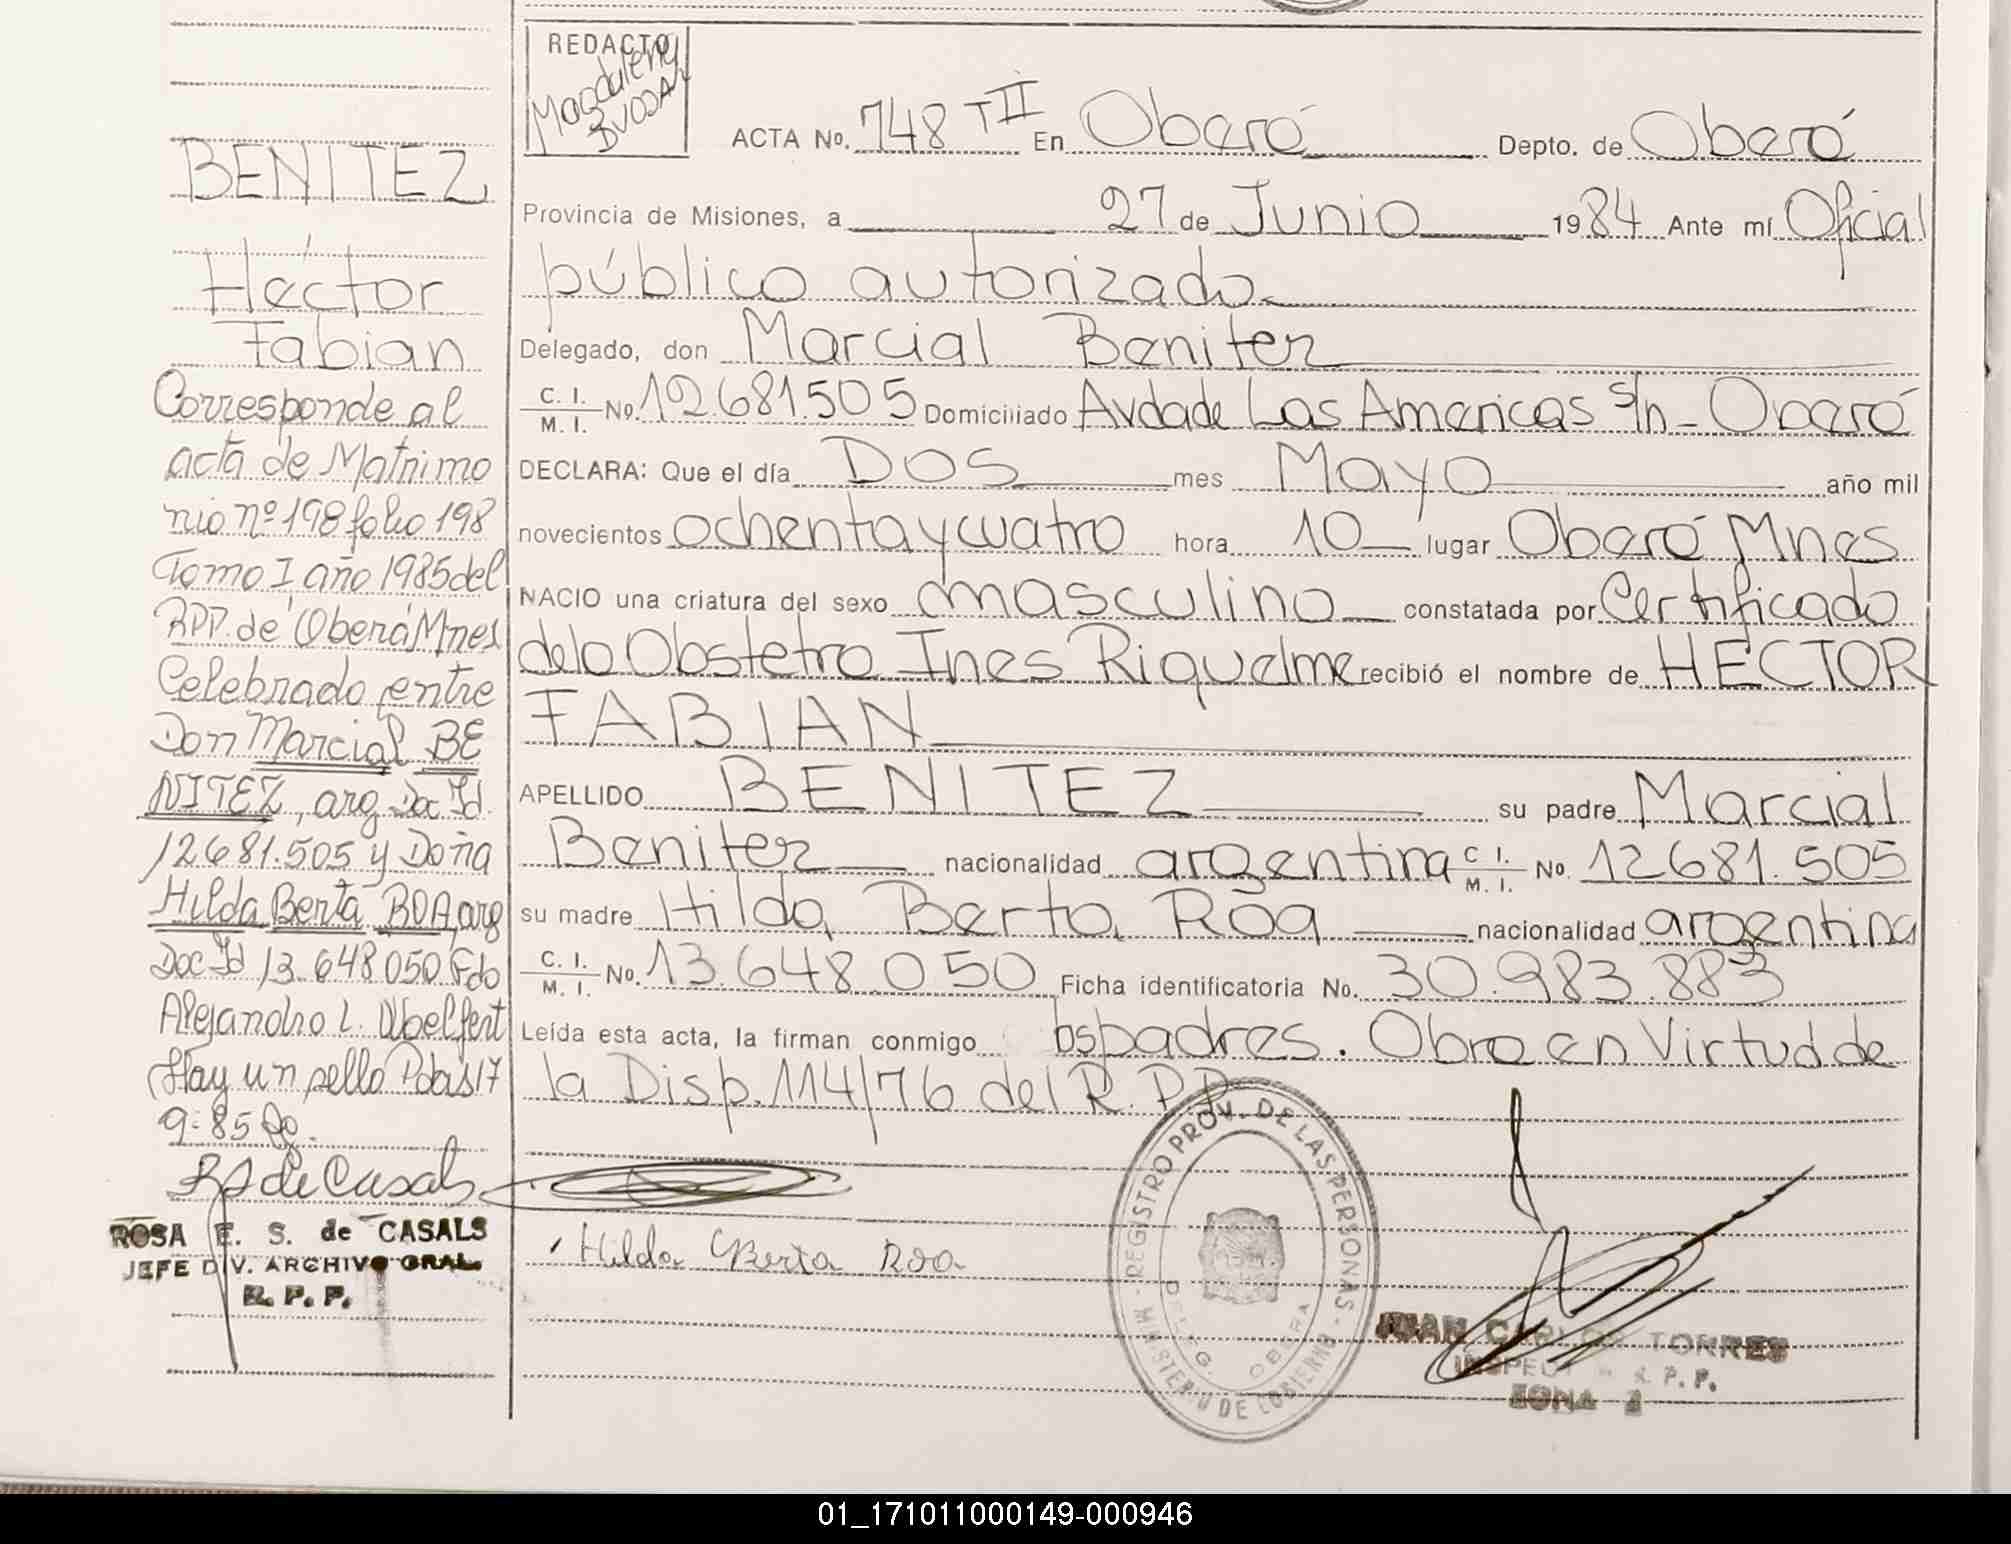 REDACTO
Magdalena
ACTA No. 748 T II En Oberá Depto. de Oberá
Provincia de Misiones, a 27 de Junio 1984 Ante mí Oficial
público autorizado
Delegado, don Marcial Benitez
C. I. / M. I. No. 12.681.505 Domiciliado Avdade Las Americas s/n - Oberá
DECLARA: Que el día DOS mes Mayo año mil
novecientos ochenta y cuatro hora 10 lugar Oberá Mnes
NACIO una criatura del sexo masculino constatada por Certificado
de la Obstetra Ines Riquelme recibió el nombre de HECTOR
FABIAN
APELLIDO BENITEZ su padre Marcial
Benitez nacionalidad argentina C. I. / M. I. No. 12681.505
su madre Hilda Berta Roa nacionalidad argentina
C. I. / M. I. No. 13.648.050 Ficha identificatoria No. 30.983.883
Leída esta acta, la firman conmigo los padres. Obra en Virtud de
la Disp. 114/76 del R.P.P.
Hilda Berta Roa
REGISTRO PROV. DE LAS PERSONAS - MINISTERIO DE GOBIERNO -
DELEG. OBERA
JUAN CARLOS TORRES
INSPECTOR R. P. P.
ZONA
BENITEZ
Héctor
Fabian
Corresponde al
acta de Matrimo
nio nº 198 folio 198
Tomo I año 1985 del
RPP. de Oberá Mnes
Celebrado entre
Don Marcial BE
NITEZ, arg Doc Id.
12681.505 y Doña
Hilda Berta ROA, arg
Doc Id 13.648.050 Fdo
Alejandro L.
Hay un sello Pdas 17
9-85
RS de Casals
ROSA E. S. de CASALS
JEFE DIV. ARCHIVO GRAL.
R. P. P.
01_171011000149-000946